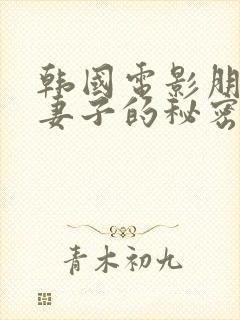 韩国电影朋
妻子的秘密
青木初九